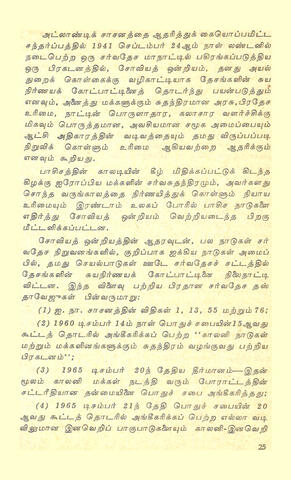 அட்லாண்டிக் சாசனத்தை ஆதரித்துக் கையொப்பமிட்ட
சந்தர்ப்பத்தில் 1941 செப்டம்பர் 24ஆம் நாள் லண்டனில்
நடைபெற்ற ஒரு சர்வதேச மாநாட்டில் பகிரங்கப்படுத்திய
ஒரு பிரகடனத்தில், சோவியத் ஒன்றியம், தனது அயல்
துறைக் கொள்கைக்கு வழிகாட்டியாக தேசங்களின் சுய
நிர்ணயக் கோட்பாட்டினைத் தொடர்ந்து பயன்படுத்தும்
எனவும், அனைத்து மக்களுக்கும் சுதந்திரமான அரசு,பிரதேச
உரிமை, நாட்டின் பொருளாதார, கலாசார வளர்ச்சிக்கு
மிகவும் பொருத்தமான, அவசியமான சமூக அமைப்பையும்
ஆட்சி அதிகாரத்தின் வடிவத்தையும் தமது விருப்பப்படி
நிறுவிக் கொள்ளும் உரிமை ஆகியவற்றை ஆதரிக்கும்
எனவும் கூறியது.
பாசிசத்தின் காலடியின் கீழ் மிதிக்கப்பட்டுக் கிடந்த
கிழக்கு ஐரோப்பிய மக்களின் சர்வசுதந்திரமும், அவர்களது
சொந்த வருங்காலத்தை நிர்ணயித்துக் கொள்ளும் நியாய
உரிமையும் இரண்டாம் உலகப் போரில் பாசிச நாடுகளை
எதிர்த்து சோவியத் ஒன்றியம் வெற்றியடைந்த பிறகு
மீட்டளிக்கப்பட்டன.
சோவியத் ஒன்றியத்தின் ஆதரவுடன், பல நாடுகள் சர்
வதேச நிறுவனங்களில், குறிப்பாக ஐக்கிய நாடுகள் அமைப்
பில், தமது செயல்பாடுகள் ஊடே சர்வதேசச் சட்டத்தில்
தேசங்களின் சுயநிர்ணயக் கோட்பாட்டினை நிலைநாட்டி
விட்டன. இந்த விளைவு பற்றிய பிரதான சர்வதேச தஸ்
தாவேஜுகள் பின்வருமாறு:
(1) ஐ. நா. சாசனத்தின் விதிகள் 1, 13, 55 மற்றும் 76;
(2) 1960 டிசம்பர் 14ம் நாள் பொதுச் சபையின்15ஆவது
கூட்டத் தொடரில் அங்கீகரிக்கப் பெற்ற "காலனி நாடுகள்
மற்றும் மக்களினங்களுக்கும் சுதந்திரம் வழங்குவது பற்றிய
பிரகடனம்";
(3) 1965 டிசம்பர் 20ந் தேதிய தீர்மானம்—இதன்
மூலம் காலனி மக்கள் நடத்தி வரும் போராட்டத்தின்
சட்டரீதியான தன்மையினை பொதுச் சபை அங்கீகரித்தது;
(4) 1965 டிசம்பர் 21ந் தேதி பொதுச் சபையின் 20
ஆவது கூட்டத் தொடரில் அங்கீகரிக்கப் பெற்ற எல்லா வடி
விலுமான இனவெறிப் பாகுபாடுகளையும் காலனி-இனவெறி
25